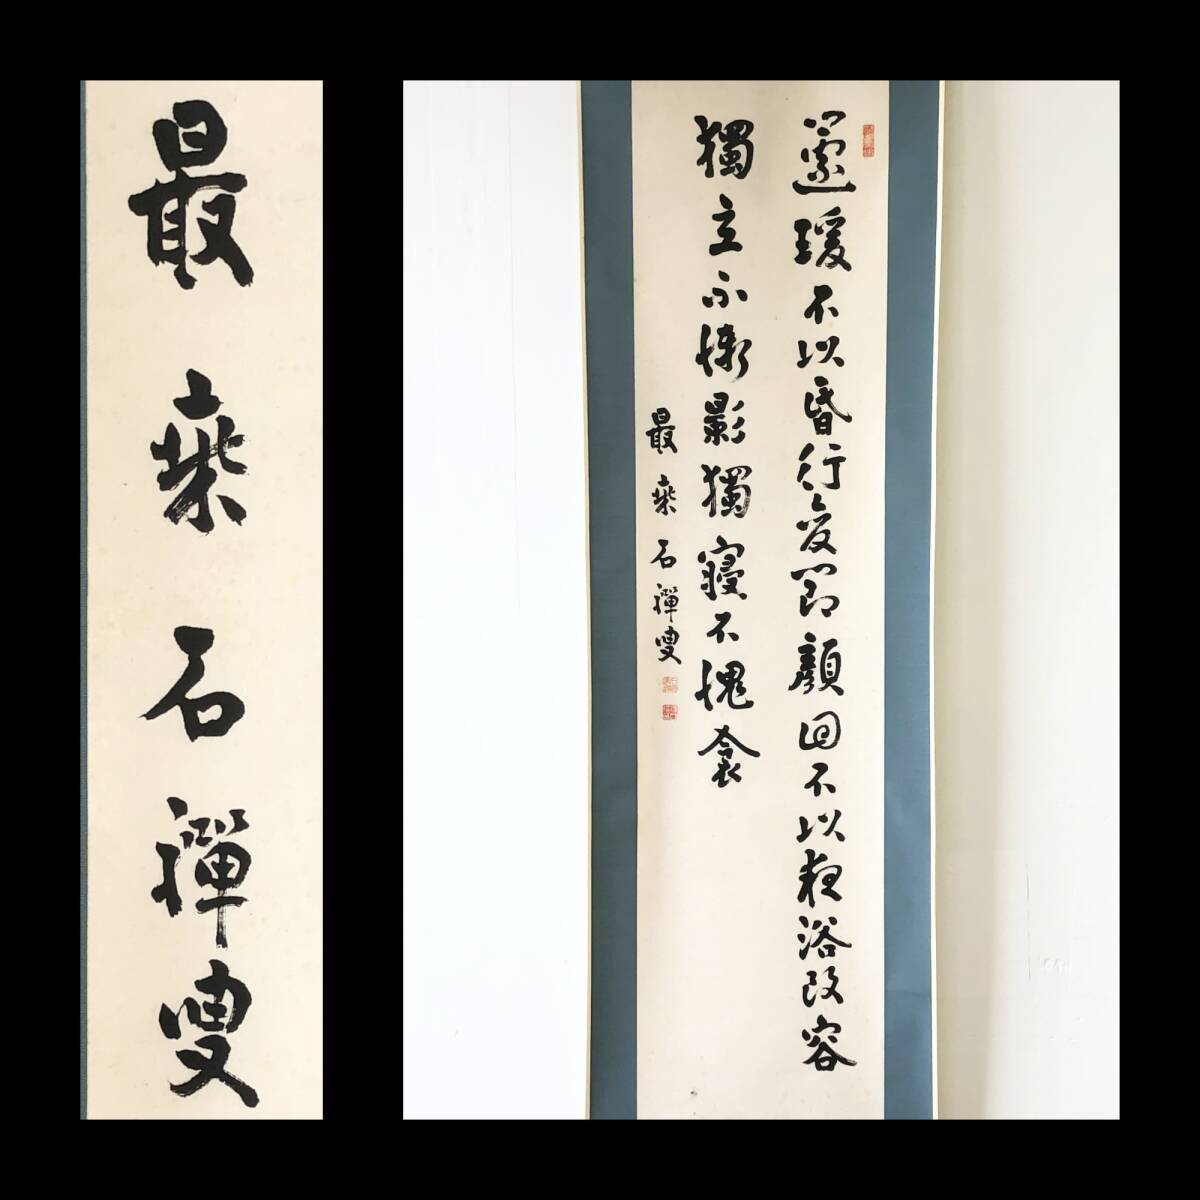 蘧瑗不以昏行変節顏回不以夜浴改容
獨立不慚影獨寢不愧衾
最乘石禪叟
最乘石禪叟